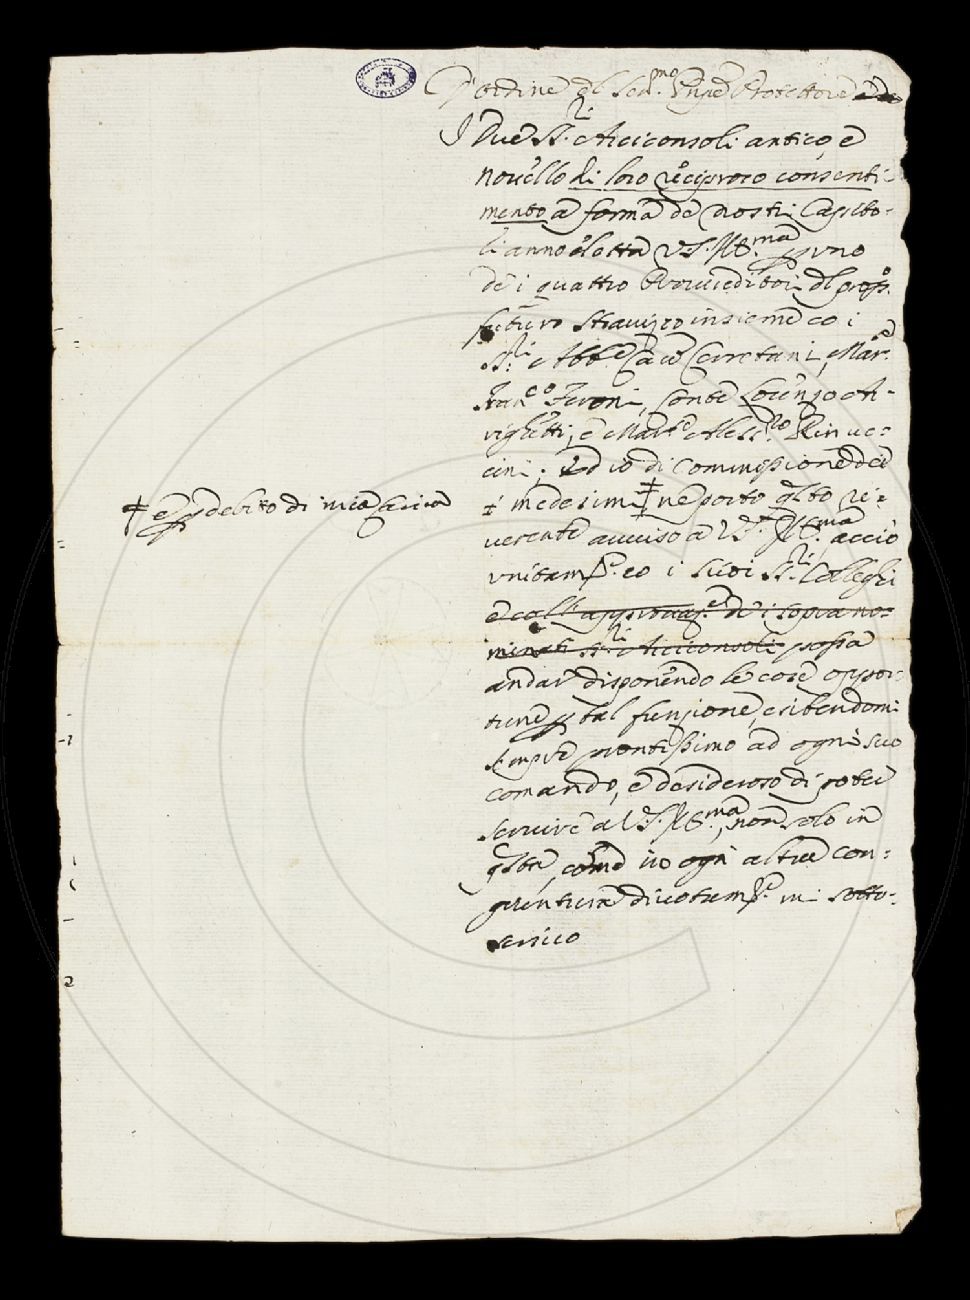 D'ordine del Ser.mo Pnpe Protettore
I due SS.ri Arciconsoli antico, e
novello di loro reciproco consenti-
mento a forma de nostri Capito-
li anno eletta V.S. Ill.ma p uno
de i quattro Provveditori del pross.o
futuro Stravizzo insieme co i
SS.ri Abb.e Cerretani, Mar.
Fran.co Feroni, Conte Lorenzo Ar-
righetti, e March.e Aless.ro Rinuc-
cini. Ed io di commissione de i
‡ medesimi ‡ ne porto q.sto re-
verente avviso a V.S. Ill.ma, acciò
‡ e p debito di mia carica
unitam.te co i suoi SS.ri Colleghi
e coll'approvaz.e de i sopra no-
minati SS.ri Arciconsoli possa
andar disponendo le cose oppor-
tune p tal funzione, esibendomi
sempre prontissimo ad ogni suo
comando, e desideroso di poter
servire a V.S. Ill.ma, non solo in
q.sta, come in ogni altra con-
giuntura divotam.te mi sotto-
scrivo